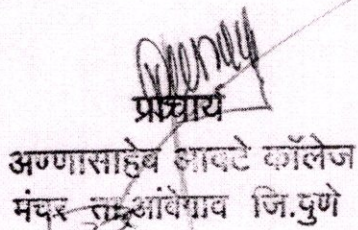 प्राचार्य
अण्णासाहेब आवटे कॉलेज
मंचर आंबेगाव जि.पुणे